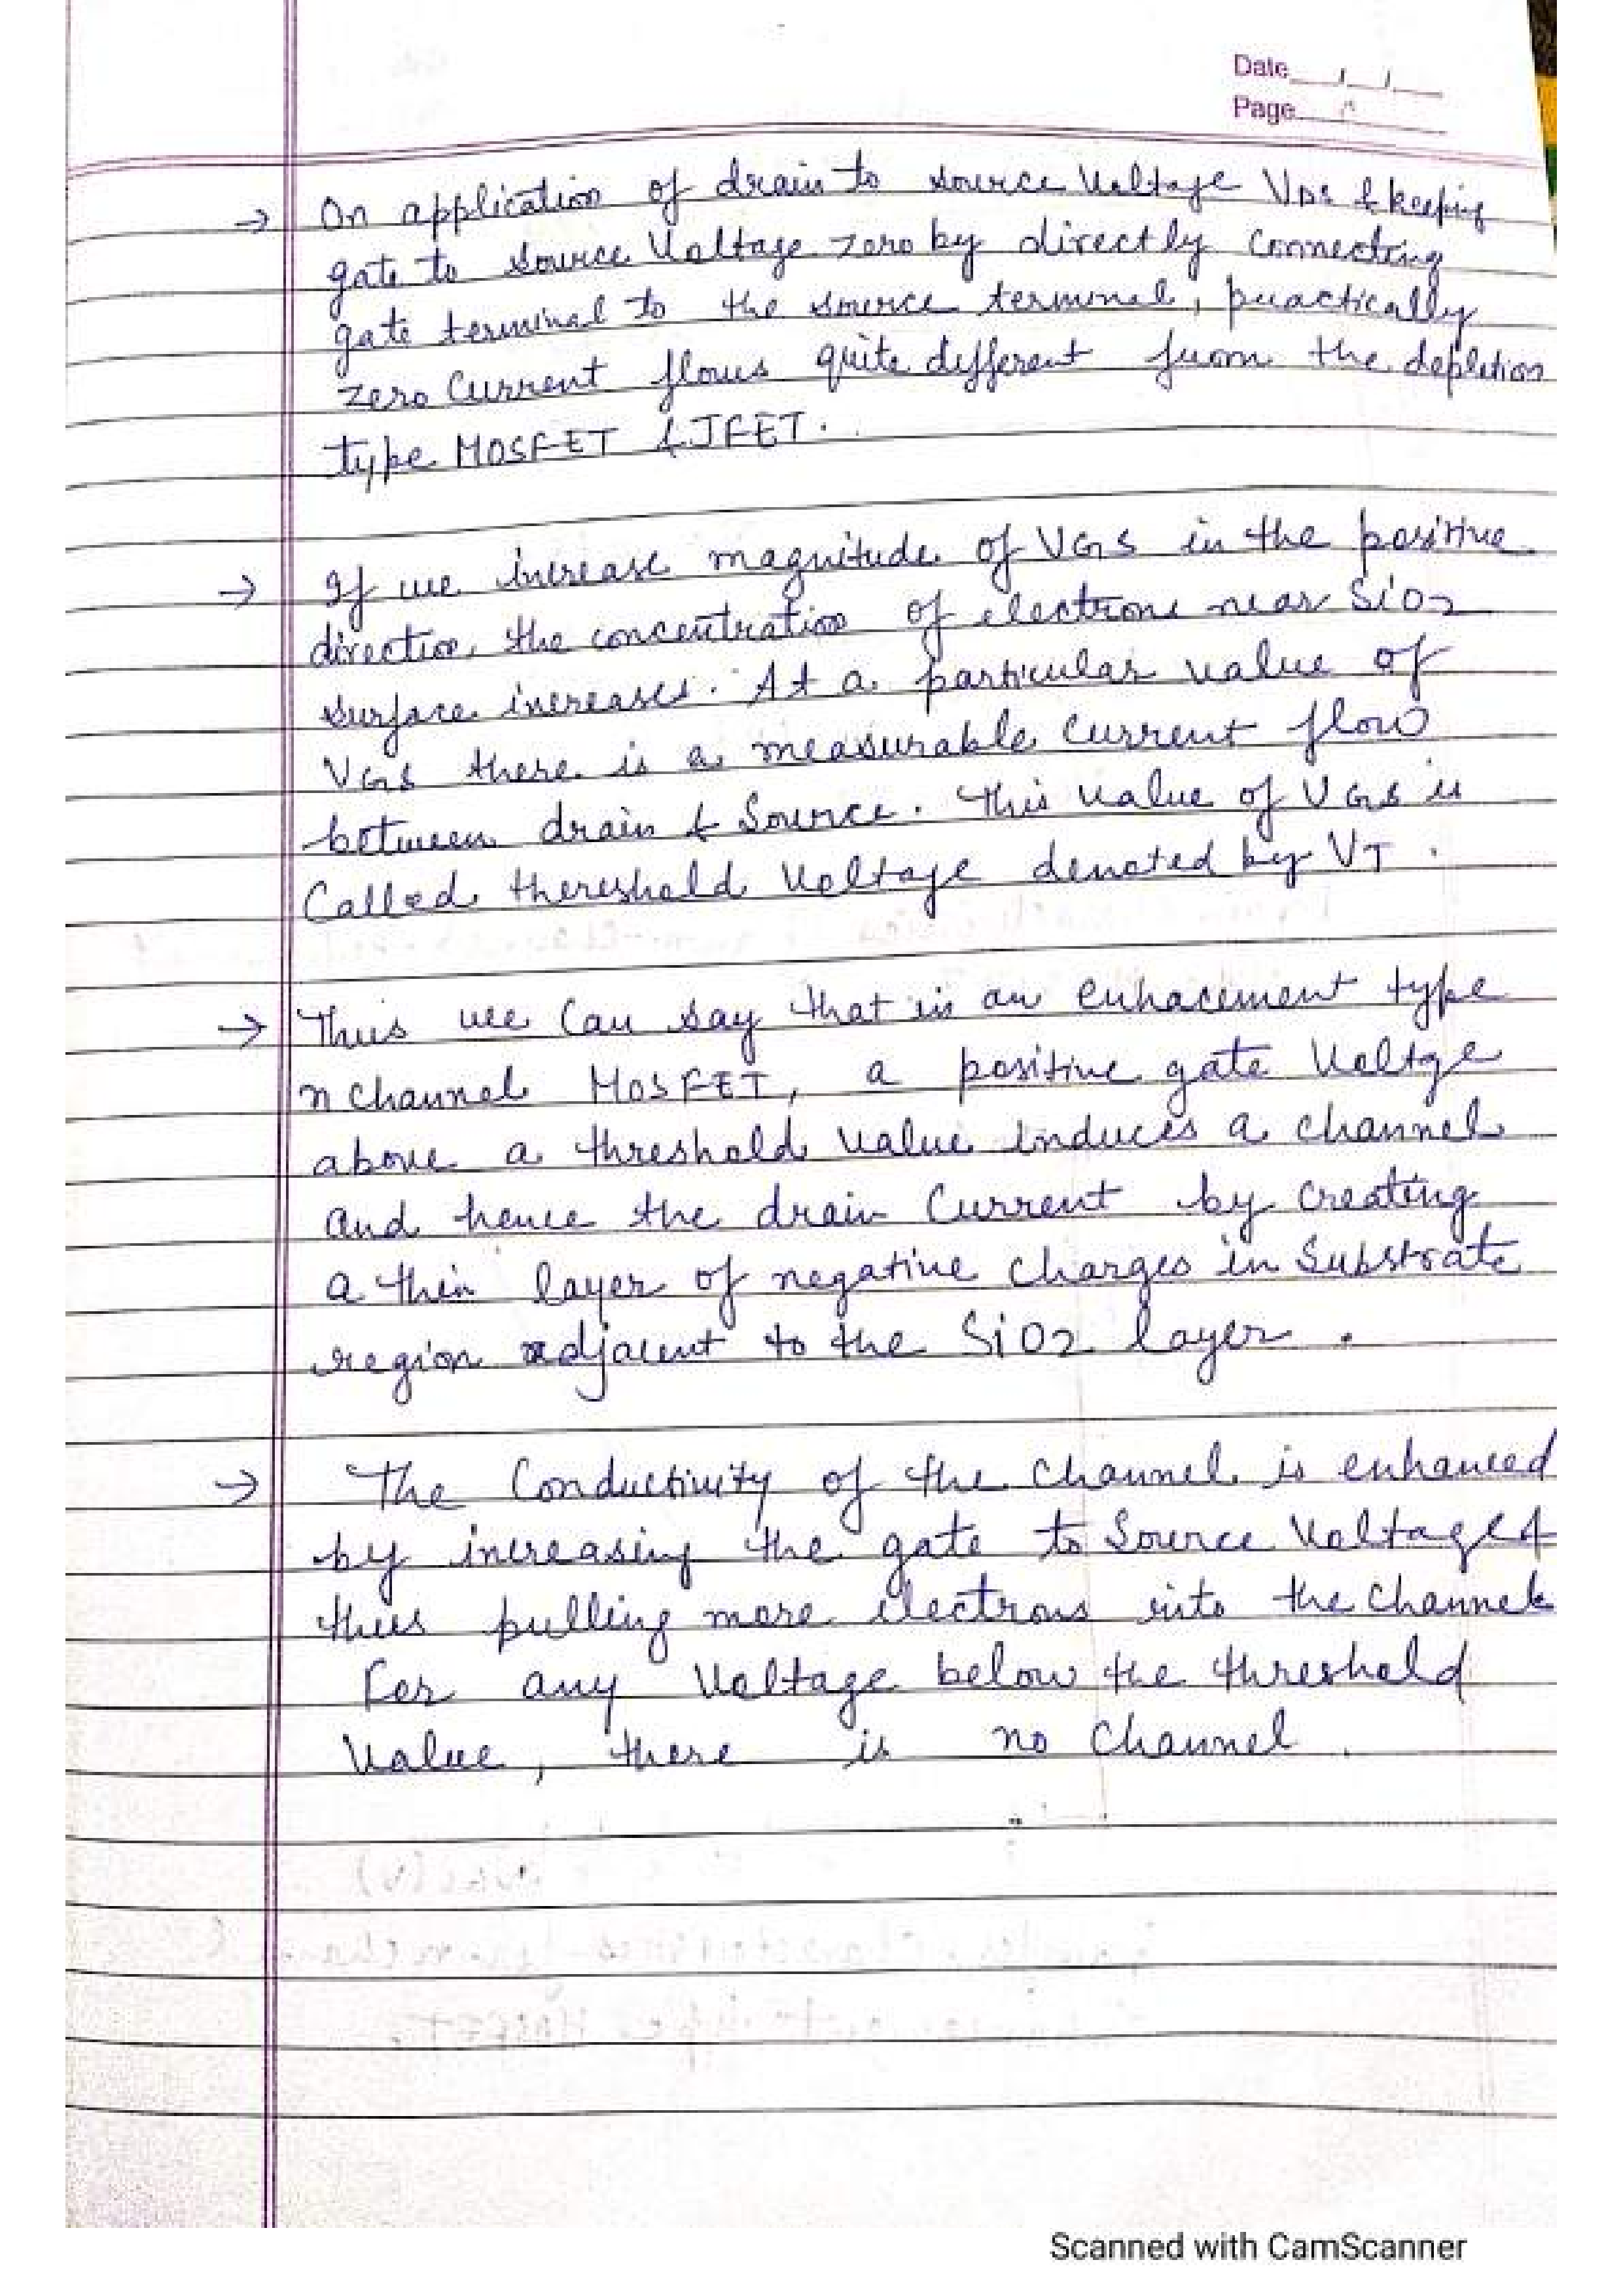 Date
Page
→ On application of drain to source Voltage VDS & keeping
gate to source Voltage zero by directly connecting
gate terminal to the source terminal, practically
zero Current flows quite different from the depletion
type MOSFET & JFET.
→ If we increase magnitude of VGS in the positive
direction, the concentration of electrons near SiO2
surface increases. At a particular value of
VGS there is a measurable Current flow
between drain & Source. This value of VGS is
Called thereshold Voltage denoted by VT.
→ Thus we Can say that in an enhacement type
n channel MOSFET, a positive gate Voltge
above a threshold value induces a channel
and hence the drain Current by creating
a thin layer of negative charges in Substrate
region adjacent to the SiO2 layer.
→ The Conductivity of the Channel is enhanced
by increasing the gate to Source Voltage &
thus pulling more electrons into the Channel
For any Voltage below the threshold
Value, there is no Channel.
Scanned with CamScanner